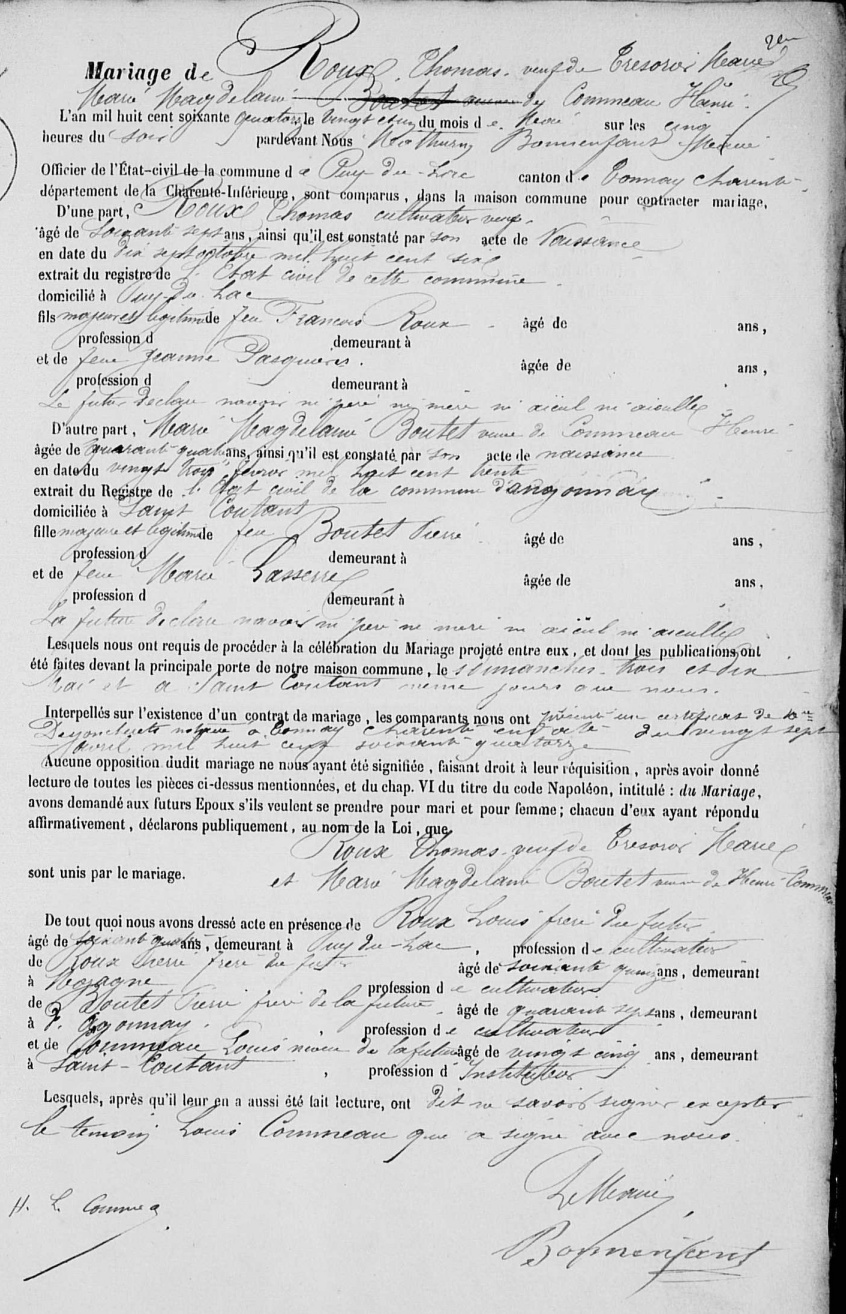 2em
Mariage de Roux Thomas veuf de Tresorié Marie
Marié Magdelainé Boutet veuve de Commeau Hënri
L'an mil huit cent soixante quatorze le vingt du mois de Mai sur les cinq
heures du soir pardevant Nous Mathurin Bonnenfant Maire
Officier de l'État-civil de la commune de Puy-du-Lac canton de Tonnay Charente
département de la Charente-Inférieure, sont comparus, dans la maison commune pour contracter mariage,
D'une part, Roux Thomas cultivateur veuf
âgé de soixante sept ans, ainsi qu'il est constaté par son acte de Naissance
en date du dix sept octobre mil huit cent six
extrait du registre de l'Etat civil de cette commune
domicilié à Puy-du-Lac
fils majeur et legitime de feu Francois Roux âgé de ans,
profession d demeurant à
et de feue Jeanne âgée de ans,
profession d demeurant à
Le futur declare navoir ni peré ni mère ni aïeul ni aieulles
D'autre part, Marié Magdelainé Boutet veuve de Commeau Henri
âgée de quarant quatre ans, ainsi qu'il est constaté par son acte de naissance
en date du vingt trois fevrier mil huit cent trente
extrait du Registre de l'Etat civil de la commune
domiciliée à Saint Coutant
fille majeure et legitime de feu Boutet Pierré âgé de ans,
profession d demeurant à
et de feue Marié Lasserre âgée de ans,
profession d demeurant à
La future declare navoir ni peré ne meré ni aïeul ni aieulles
Lesquels nous ont requis de procéder à la célébration du Mariage projeté entre eux, et dont les publications ont
été faites devant la principale porte de notre maison commune, le s dimanches trois et dix
Mai et a Saint Coutant même jours que nous.
Interpellés sur l'existence d'un contrat de mariage, les comparants nous ont présenté un certificat de
notaire a Tonnay Charente en date du vingt sept
avril mil huit cent soixante quatorze
Aucune opposition dudit mariage ne nous ayant été signifiée, faisant droit à leur réquisition, après avoir donné
lecture de toutes les pièces ci-dessus mentionnées, et du chap. VI du titre du code Napoléon, intitulé : du Mariage,
avons demandé aux futurs Epoux s'ils veulent se prendre pour mari et pour femme; chacun d'eux ayant répondu
affirmativement, déclarons publiquement, au nom de la Loi, que
Roux Thomas veuf de Tresorié Marie
sont unis par le mariage. et Marié Magdelainé Boutet veuve de Henri Commeau
De tout quoi nous avons dressé acte en présence de Roux Louis freré du futur
âgé de soixant quatre ans, demeurant à Puy-du-Lac, profession de cultivateur
de Roux Pierré freré du futur âgé de soixante quinze ans, demeurant
à Moragne profession de cultivateur
de Boutet Pierré freré de la future âgé de quarant sept ans, demeurant
à , profession de cultivateur
et de Commeau Louis neveu de la future âgé de vingt cinq ans, demeurant
à Saint-Coutant, profession d'Instituteur
Lesquels, après qu'il leur en a aussi été fait lecture, ont dit ne savoir signer excepter
le temoin Louis Commeau que a signé avec nous.
Le Maire
H. L. Commea
Bonnenfant